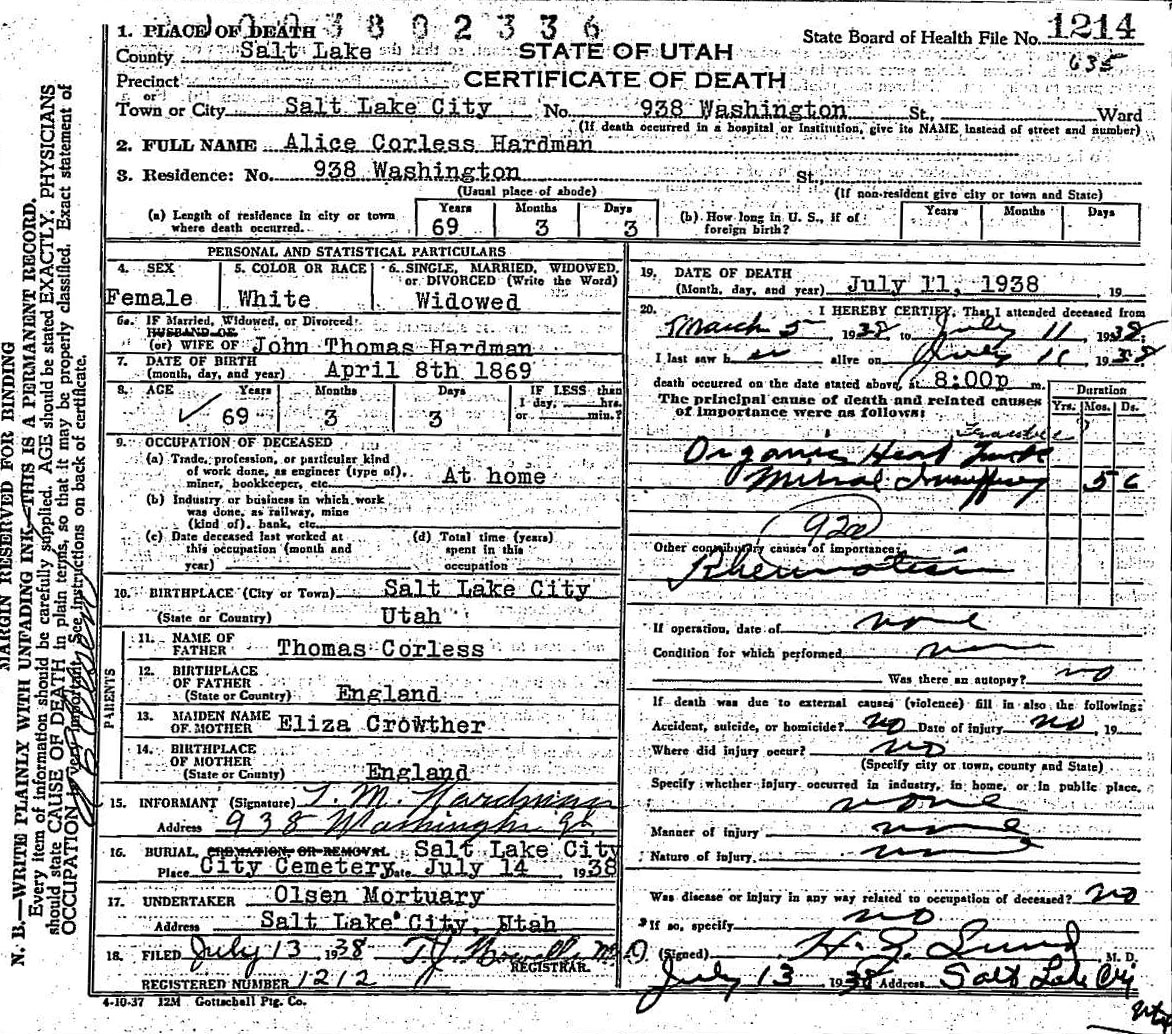 3 8 0 2 3 3 6
1. PLACE OF DEATH
County Salt Lake
STATE OF UTAH
State Board of Health File No. 1214
635
Precinct
CERTIFICATE OF DEATH
or
Town or City Salt Lake City No. 938 Washington St., Ward
(If death occurred in a hospital or institution, give its NAME instead of street and number)
2. FULL NAME Alice Corless Hardman
3. Residence: No. 938 Washington St.,
(Usual place of abode) (If non-resident give city or town and State)
(a) Length of residence in city or town where death occurred. Years 69 Months 3 Days 3
(b) How long in U. S., if of foreign birth? Years Months Days
PERSONAL AND STATISTICAL PARTICULARS
4. SEX Female
5. COLOR OR RACE White
6. SINGLE, MARRIED, WIDOWED, or DIVORCED (Write the Word) Widowed
6a. IF Married, Widowed, or Divorced
HUSBAND OF
(or) WIFE OF John Thomas Hardman
7. DATE OF BIRTH
(month, day, and year) April 8th 1869
8. AGE Years 69 Months 3 Days 3
IF LESS than
1 day, hrs.
or min.?
9. OCCUPATION OF DECEASED
(a) Trade, profession, or particular kind
of work done, as engineer (type of),
miner, bookkeeper, etc. At home
(b) Industry or business in which work
was done, as railway, mine
(kind of), bank, etc.
(c) Date deceased last worked at
this occupation (month and
year)
(d) Total time (years)
spent in this
occupation
10. BIRTHPLACE (City or Town) Salt Lake City
(State or Country) Utah
PARENTS
11. NAME OF
FATHER Thomas Corless
12. BIRTHPLACE
OF FATHER
(State or Country) England
13. MAIDEN NAME
OF MOTHER Eliza Crowther
14. BIRTHPLACE
OF MOTHER
(State or County) England
15. INFORMANT (Signature) T. M. Hardman
Address 938 Washington
16. BURIAL, CREMATION OR REMOVAL Salt Lake City
Place City Cemetery Date July 14 1938
17. UNDERTAKER Olsen Mortuary
Address Salt Lake City, Utah
18. FILED July 13 1938 T. J. Howells M D
REGISTRAR.
REGISTERED NUMBER 1212
4-10-37 12M Gottschall Ptg. Co.
19. DATE OF DEATH
(Month, day, and year) July 11, 1938 19
20. I HEREBY CERTIFY, That I attended deceased from
March 5 1938 to July 11 1938;
I last saw her alive on July 11 1938
death occurred on the date stated above, at 8:00p m.
The principal cause of death and related causes
of importance were as follows:
Duration
Yrs. Mos. Ds.
Organic Heart
Mitral 5 6
92a
Other contributory causes of importance:
Rheumatism
If operation, date of none
Condition for which performed
Was there an autopsy? no
If death was due to external causes (violence) fill in also the following:
Accident, suicide, or homicide? no Date of injury no, 19
Where did injury occur? no
(Specify city or town, county and State)
Specify whether injury occurred in industry, in home, or in public place,
none
Manner of injury none
Nature of injury none
Was disease or injury in any way related to occupation of deceased? no
If so, specify no
(Signed) H. Z. Lund M. D.
July 13 1938 Address Salt Lake City
Utah
MARGIN RESERVED FOR BINDING
N. B.—WRITE PLAINLY WITH UNFADING INK—THIS IS A PERMANENT RECORD.
Every item of information should be carefully supplied. AGE should be stated EXACTLY. PHYSICIANS
should state CAUSE OF DEATH in plain terms, so that it may be properly classified. Exact statement of
OCCUPATION is very important. See instructions on back of certificate.